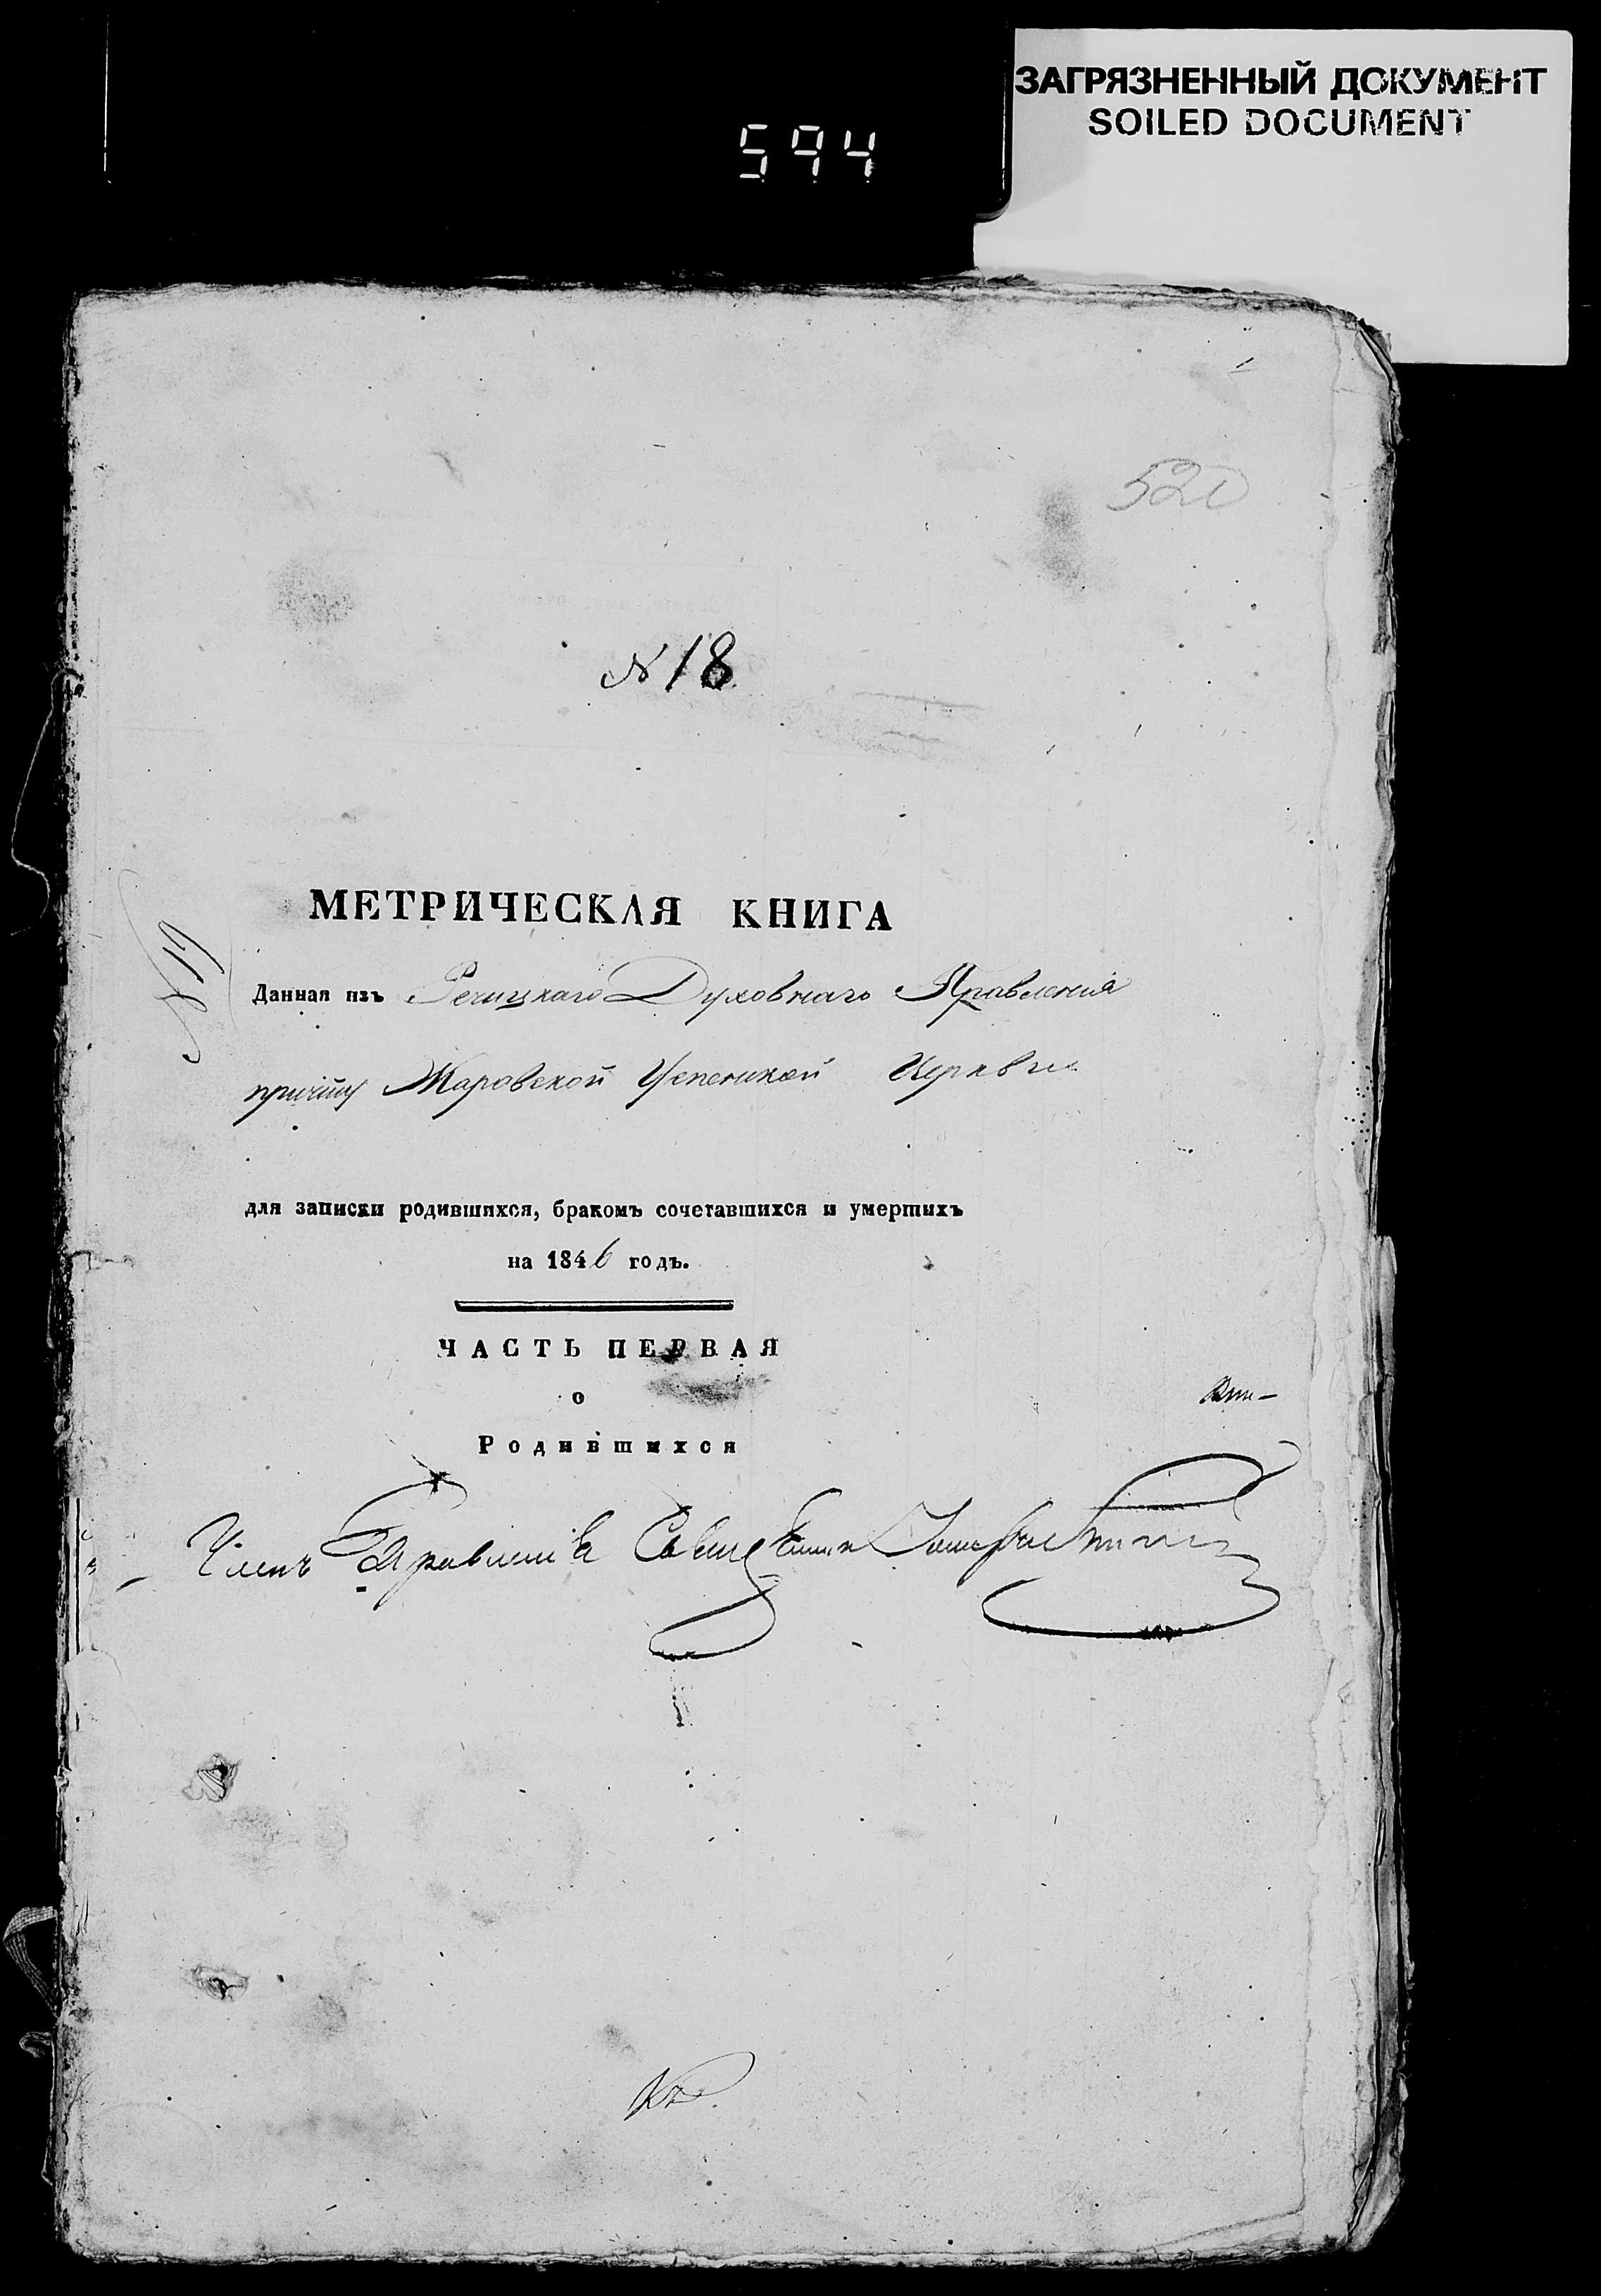 ЗАГРЯЗНЕННЫЙ ДОКУМЕНТ
SOILED DOCUMENT
594
520
N 18
МЕТРИЧЕСКАЯ КНИГА
Данная изъ Речицкаго Духовнаго Правления
причту Жаровской Успенской Церкви
для записки родившихся, бракомъ сочетавшихся и умершихъ
на 1846 годъ.
ЧАСТЬ ПЕРВАЯ
о
Родившихся
Членъ Правления